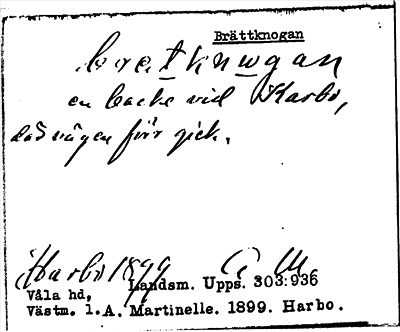 Brättknogan
bratknwgan
en backe vid Karbo,
dås vägen förr gick.
Harbo 1899 A. M.
Landsm. Upps. 303:936
Våla hd,
Västm. l. A. Martinelle. 1899. Harbo.